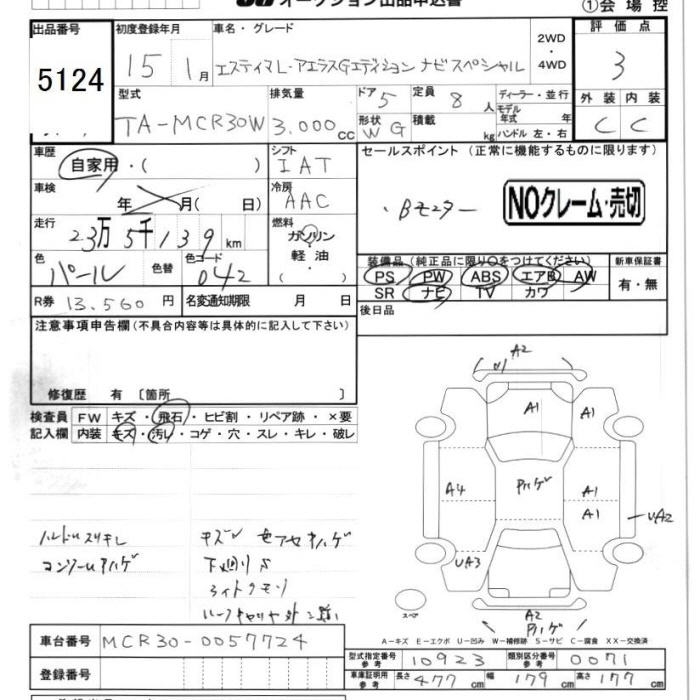 オークション出品申込書
①会場控
出品番号
5124
初度登録年月
15 1月
車名・グレード
エスティマL・アエラスGエディション ナビスペシャル
2WD
・
4WD
評価点
3
外装 内装
C C
型式
TA-MCR30W
排気量
3.000cc
ドア 5
形状 WG
定員 8人
積載 kg
ディーラー・並行
モデル
年式 年
ハンドル 左・右
車歴
自家用・( )
シフト
IAT
冷房
AAC
車検
年 月( 日)
走行
23万5千139km
燃料
ガソリン
・
軽油
・
色
パール
色替
色コード
042
R券 13.560円
名変通知期限 月 日
セールスポイント(正常に機能するものに限ります)
・Bモニター
NOクレーム・売切
装備品(純正品に限り○をつけてください)
PS PW ABS エアB AW
SR ナビ TV カワ
新車保証書
有・無
後日品
注意事項申告欄(不具合内容等は具体的に記入して下さい)
修復歴 有〔箇所 〕
検査員
記入欄
FW キズ・飛石・ヒビ割・リペア跡・×要
内装 キズ・汚れ・コゲ・穴・スレ・キレ・破レ
ハンドルスリキレ
コンソールハゲ
下廻りS
ライトクモリ
A2
U1
A1
A1
A4
A1
A1
UA2
UA3
A2
スペア
A-キズ E-エクボ U-凹み W-補修跡 S-サビ C-腐食 XX-交換済
車台番号 MCR30-0057724
登録番号
型式指定番号
参考
10923
類別区分番号
参考
0071
車庫証明用
参考
長さ 477cm 幅 179cm 高さ 177cm